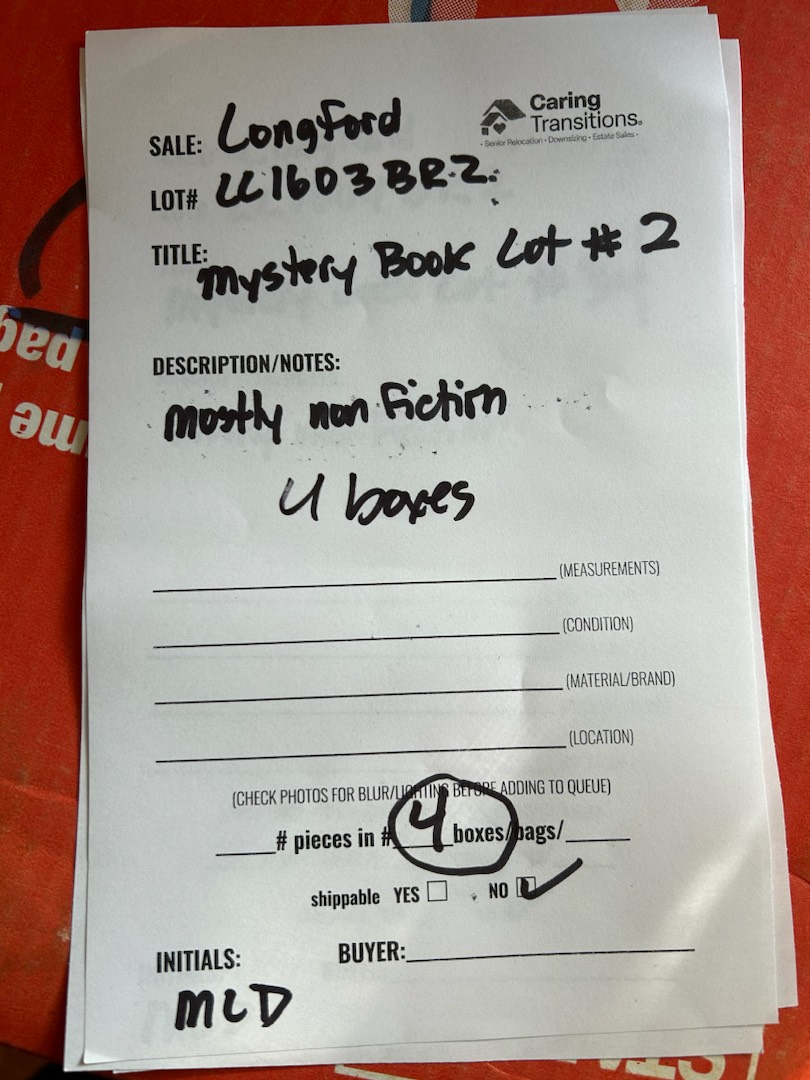 Caring
Transitions.
• Senior Relocation • Downsizing • Estate Sales •
SALE: Longford
LOT# LL1603BR2
TITLE: Mystery Book Lot # 2
DESCRIPTION/NOTES:
mostly non fiction
4 boxes
(MEASUREMENTS)
(CONDITION)
(MATERIAL/BRAND)
(LOCATION)
(CHECK PHOTOS FOR BLUR/LIGHTING BEFORE ADDING TO QUEUE)
# pieces in # 4 boxes/bags/
shippable YES NO
INITIALS: BUYER:
MLD